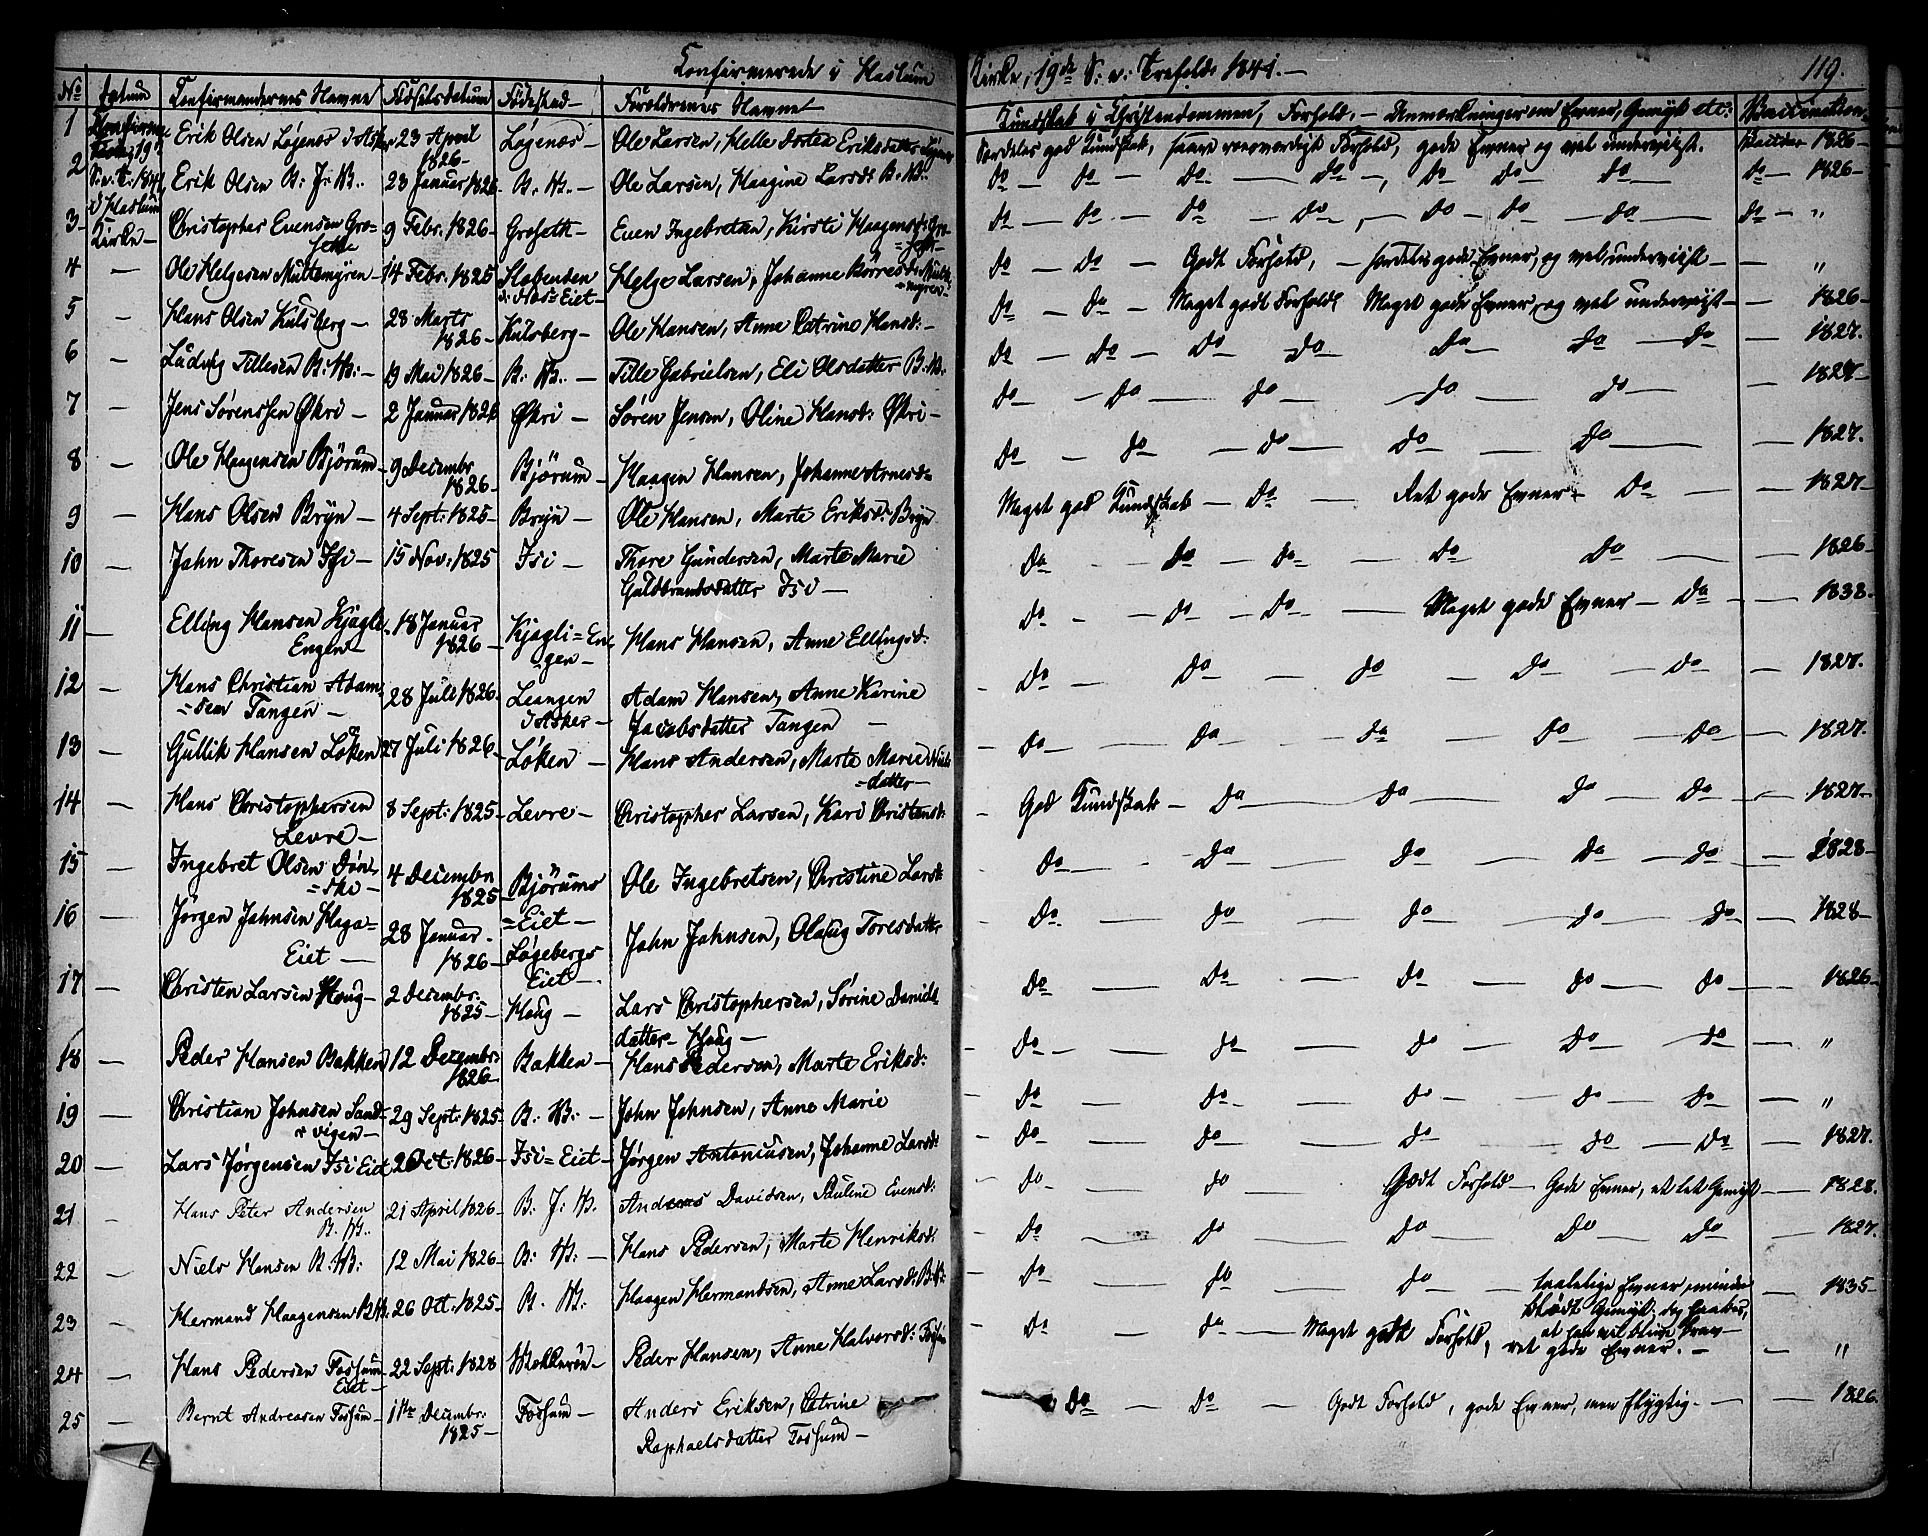 Confirmerede i Haslum Kirke, 19de S: v: Trefold: 1841.— 119.
No Datum Confirmandernes Navne Fødselsdatum Fødestad— Forældrenes Navne Kundskab i Christendommen, Forhold.— Anmærkninger om Evner, Gemyt etc: Vaccination
1 Erik Olsen Løgenæs i Asker 23 April 1826— Løgenæs— Ole Larsen, Helle Dortea Eriksdatter Særdeles god Kundskab, særdeles gode Evner og vel underviist. 1826—
19de
S: v: T: 1841
i Haslum
Kirke—
2 Erik Olsen B: J: W.. 28 Januar 1826 B. W.— Ole Larsen, Maagine Larsd: B: W: do— do— do— do—, do— do— do— do— 1826—
3— Christopher Evensen Gro= 9 Febr. 1826— Groseth— Even Ingebretsen, Kirsti Haagensd: Gro= do— do— do— do—, do— do— do— do— „
4 — Ole Helgesen Multemyren— 14 Febr. 1825 Stabenden Helge Larsen, Johanne Børresd: Mult= do— do— Godt Forhold,— særdeles gode Evner, og vel underviist— — „
=myren—
5 — Hans Olsen Kulsberg— 28 Marts 1826— Kulsberg— Ole Hansen, Anne Catrine Hansd:— do— do— Meget godt Forhold, Meget gode Evner, og vel underviist— — 1826—
6 — Ludvig Tillesen B: W:— 19 Mai 1826— B: W..— Tille Gabrielsen, Eli Olsdatter B: W: do— do— do— do— do— do— do— 1827.
7 — Jens Sørenssen Økri— 2 Januar 1826 Økri— Søren Jensen, Oline Hansd: Økri— do— do— do— do— do— — 1827—
8 — Ole Haagensen Bjørum— 9 Decembr 1826— Bjørum— Haagen Hansen, Johanne Arnesd= do— do— do— do— do— — 1827.
9 — Hans Olsen Bryn— 4 Sept: 1825— Bryn— Ole Hansen, Marte Eriksd: Bryn Meget god Kundskab— do— Ret gode Evner— do— — 1827—
10 — Jahn Thoresen Isi— 15 Nov: 1825 Isi— Thore Gundersen, Marte Marie do— do— do— do— do— — 1826—
Guldbrandsdatter Isi—
11— Elling Hansen Kjagli= 18 Januar 1826— Kjagli=En= Hans Hansen, Anne Ellingsd: do— do— do— Meget gode Evner— do— — 1838.
Engen— =gen—
12 — Hans Christian Adam= 28 Juli 1826. Leangen Adam Hansen, Anne Karine do— do— do— do— do— — 1827.
=sen Tangen— i Asker— Jacobsdatter Tangen—
13 — Gullik Hansen Løken 27 Juli 1826— Løken— Hans Andersen, Marte Marie do— do— do— do— do— — 1827.
=datter—
14 — Hans Christophersen 8 Sept: 1825— Levre— Christopher Larsen, Kari Christensd: God Kundskab— do— do— do— do— — 1827—
Levre—
15 — Ingebret Olsen Døni= 4 Decembr 1825 Bjørums Ole Ingebretsen, Christine Larsd: do— do— do— do— do— — 1828—
=ski— =Eiet—
16 — Jørgen Jahnsen Haga= 28 Januar 1826— Løgebergs Jahn Jahnsen, Olaug Toresdatter do— do— do— do— do— — 1828—
Eiet— Eiet—
17 — Christen Larsen Houg— 2 Decembr. 1825— Houg— Lars Christophersen, Sørine Daniels do— do— do— do— do— — 1826—
datter— Houg—
18 — Peder Hansen Bakken 12 Dezembr: 1826— Bakken— Hans Pedersen, Marte Eriksd: do— do— do— do— do— — „
19 — Christian Johnsen Sand= 29 Sept: 1825 B: W:— John Johnsen, Anne Marie do— do— do— do— do— — „
vigen—
20 — Lars Jørgensen Isi Eiet 2 Oct: 1826— Isi=Eiet— Jørgen Antoniusen, Johanne Larsd: do— do— do— do— do— — 1827.
21 — Hans Peter Andersen 21 April 1826— B. J: W. Andreas Davidsen, Pauline Evensd: do— do— Godt Forhold— Gode Evner, et let Gemyt— — 1828.
B. W..
22 — Niels Hansen B: W: 12 Mai 1826— B: W:— Hans Pedersen, Marte Henriksd: do— do— do— do— do— 1827.
23 — Hermand Haagensen B: W. 26 Oct. 1825— B. W: Haagen Hermandsen, Anne Larsd: B: W: do— do— do— taalelige Evner, mindre — 1835—
24 — Hans Pedersen Fossum 22 Sept: 1828 Peder Hansen, Anne Halvorsd: do— do— Meget godt Forhold, ret gode Evner.— — „
Eiet—
25 — Bernt Andreasen Fossum— 11te Decembr: 1825— Fossum— Anders Eriksen, Catrine do— do— Godt Forhold, gode Evner, men flygtig.— — 1826.
Raphaelsdatter Fossum—